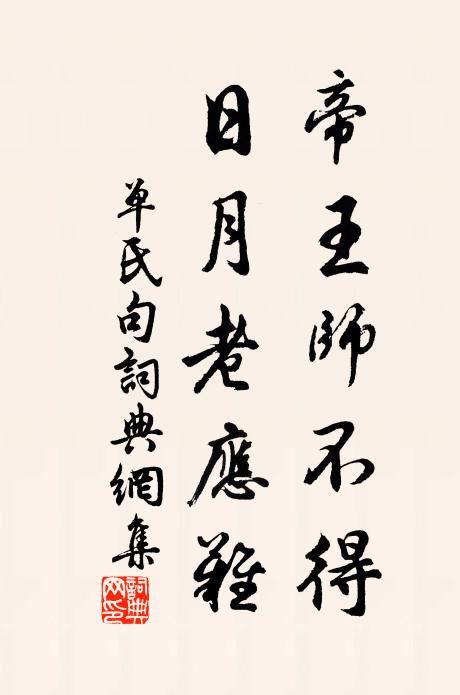 帝王師不得
日月老應難
單氏句詞典網集
詞典网印